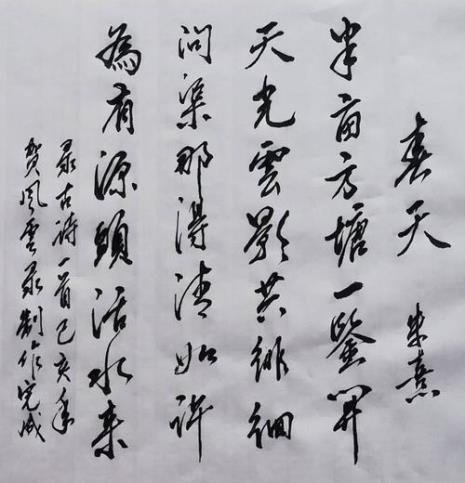 春天 朱熹
半亩方塘一鑒開
天光雲影共徘徊
问渠那得清如许
為有源頭活水来
录古诗一首己亥年
贺风雲录制作完成